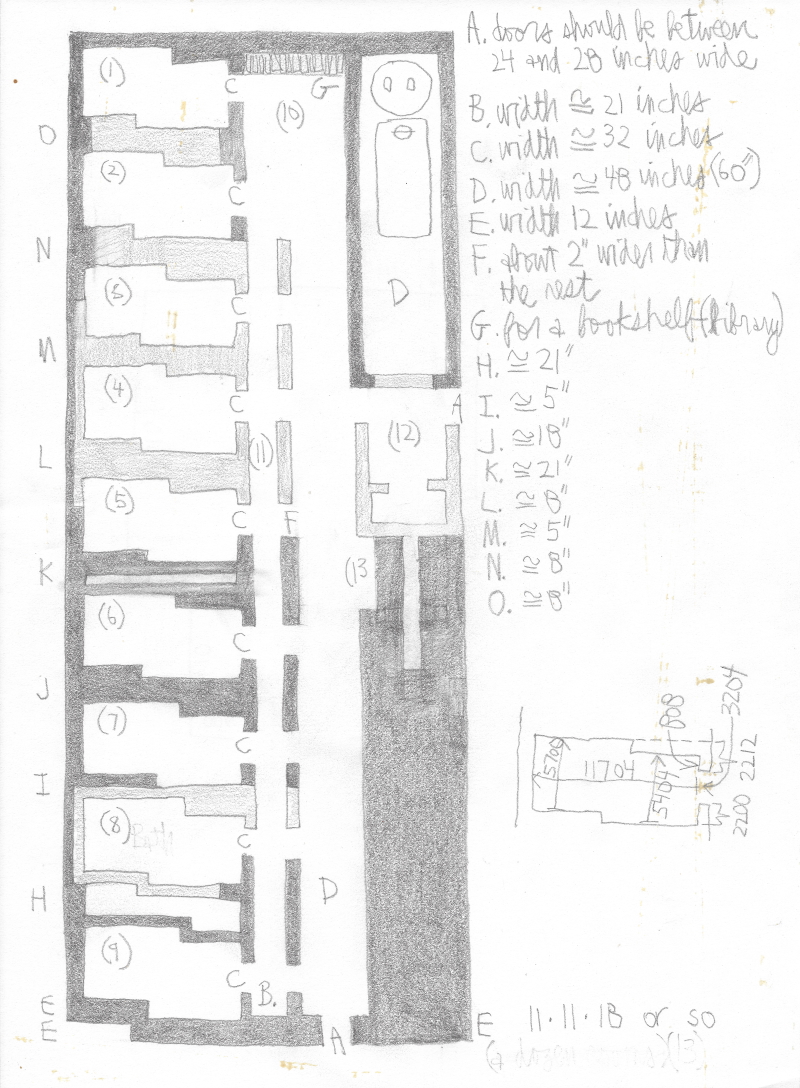 A. doors should be between
24 and 28 inches wide
B. width ≅ 21 inches
C. width ≅ 32 inches
D. width ≅ 48 inches (60")
E. width 12 inches
F. about 2" wider than
the rest
G. for a bookshelf (library)
H. ≅ 21"
I. ≅ 5"
J. ≅ 18"
K. ≅ 21"
L. ≅ 8"
M. ≅ 5"
N. ≅ 8"
O. ≅ 8"
(1)
C
G
(10)
O
(2)
C
N
(3)
C
D
M
(4)
C
A
(11)
(12)
L
(5)
C
F
K
(13
(6)
C
J
(7)
C
I
(8)
Bath
C
H
D
(9)
C
B.
E
E
A
E
808
3204
5700
11704
5404
2212
2200
11·11·18 or so